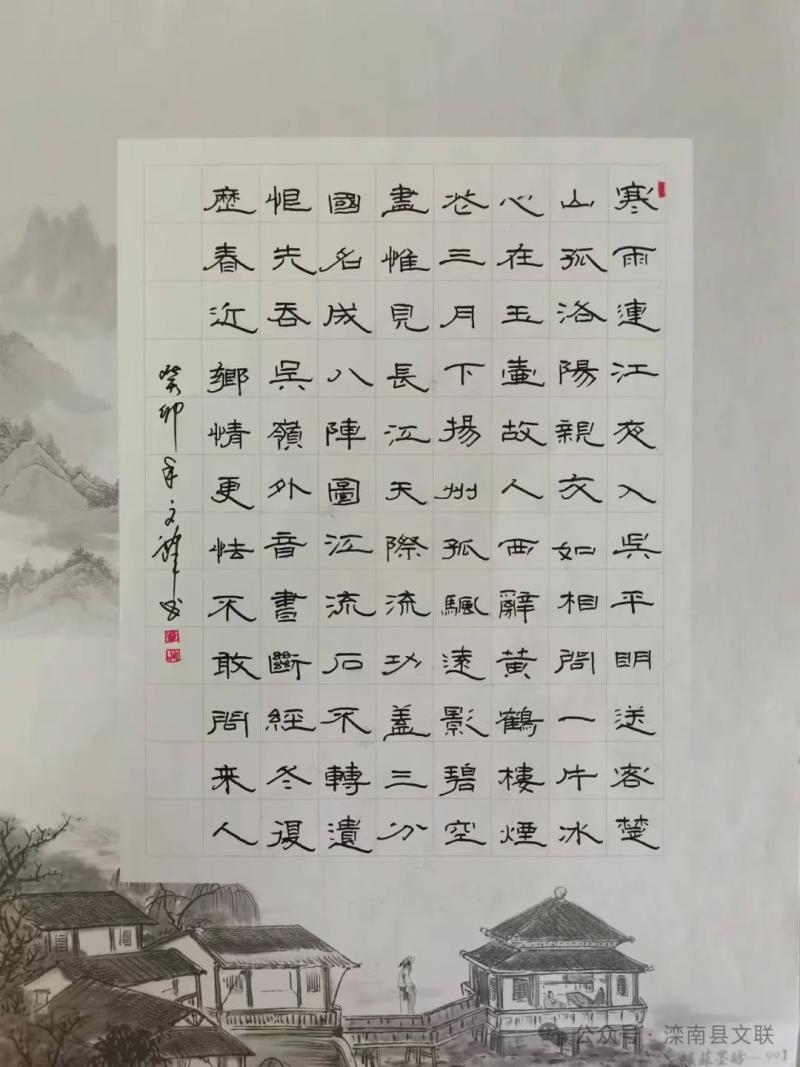 寒雨連江夜入吳平明送客楚
山孤洛陽親友如相問一片冰
心在玉壺故人西辭黃鶴樓煙
花三月下揚州孤颿遠影碧空
盡惟見長江天際流功蓋三分
國名成八陣圖江流石不轉遺
恨失吞吳嶺外音書斷經冬復
歷春近鄉情更怯不敢問來人
癸卯年文書
公众号 · 滦南县文联
蘇墨坊—99】